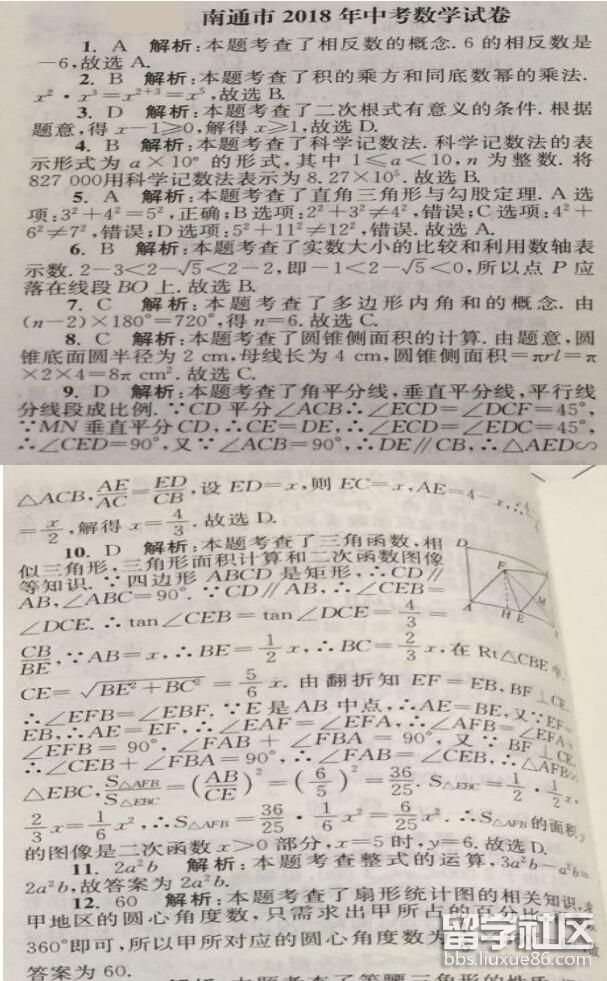 南通市 2018 年中考数学试卷
1. A 解析:本题考查了相反数的概念. 6 的相反数是
-6,故选 A.
2. B 解析:本题考查了积的乘方和同底数幂的乘法.
x²·x³=x²⁺³=x⁵,故选 B.
3. D 解析:本题考查了二次根式有意义的条件. 根据
题意,得 x-1≥0,解得 x≥1,故选 D.
4. B 解析:本题考查了科学记数法. 科学记数法的表
示形式为 a×10ⁿ 的形式,其中 1≤a<10,n 为整数. 将
827 000用科学记数法表示为 8.27×10⁵. 故选 B.
5. A 解析:本题考查了直角三角形与勾股定理. A 选
项:3²+4²=5²,正确;B 选项:2²+3²≠4²,错误;C 选项:4²+
6²≠7²,错误;D 选项:5²+11²≠12²,错误. 故选 A.
6. B 解析:本题考查了实数大小的比较和利用数轴表
示数. 2-3<2-√5<2-2,即-1<2-√5<0,所以点 P 应
落在线段 BO 上. 故选 B.
7. C 解析:本题考查了多边形内角和的概念. 由
(n-2)×180°=720°,得 n=6. 故选 C.
8. C 解析:本题考查了圆锥侧面积的计算. 由题意,圆
锥底面圆半径为 2 cm,母线长为 4 cm,圆锥侧面积=πrl=π
×2×4=8π cm². 故选 C.
9. D 解析:本题考查了角平分线,垂直平分线,平行线
分线段成比例. ∵CD 平分∠ACB∴∠ECD=∠DCF=45°,
∵MN 垂直平分 CD,∴CE=DE,∴∠ECD=∠EDC=45°,
∴∠CED=90°,又∵∠ACB=90°,∴DE∥CB,∴△AED∽
△ACB,AE/AC=ED/CB,设 ED=x,则 EC=x,AE=4-x,∴
=x/2,解得 x=4/3. 故选 D.
10. D 解析:本题考查了三角函数,相
似三角形,三角形面积计算和二次函数图像
等知识. ∵四边形 ABCD 是矩形,∴CD∥
AB,∠ABC=90°. ∵CD∥AB,∴∠CEB=
∠DCE. ∴tan∠CEB=tan∠DCE=4/3=
D
F
M
A
H E
CB/BE,∵AB=x,∴BE=1/2 x,∴BC=2/3 x,在 Rt△CBE 中,
CE=√(BE²+BC²)=5/6 x. 由翻折知 EF=EB,BF⊥CE.
∴∠EFB=∠EBF. ∵E 是 AB 中点,∴AE=BE,又∵EF=
EB,∴AE=EF,∴∠EAF=∠EFA,∴∠AFB=∠EFA+
∠EFB=90°,∠FAB+∠FBA=90°,又∵BF⊥CE,
∴∠CEB+∠FBA=90°,∴∠FAB=∠CEB,∴△AFB∽
△EBC,S△AFB/S△EBC=(AB/CE)²=(6/5)²=36/25. S△EBC=1/2·1/2 x·
2/3 x=1/6 x²,∴S△AFB=36/25·1/6 x²=6/25 x². ∴S△AFB的面积y
的图像是二次函数 x>0 部分,x=5 时,y=6. 故选 D.
11. 2a²b 解析:本题考查整式的运算,3a²b-a²b=
2a²b,故答案为 2a²b.
12. 60 解析:本题考查了扇形统计图的相关知识,求
甲地区的圆心角度数,只需求出甲所占的百分比
360°即可,所以甲所对应的圆心角度数为
答案为 60.
留学社区
bbs.liuxue86.com